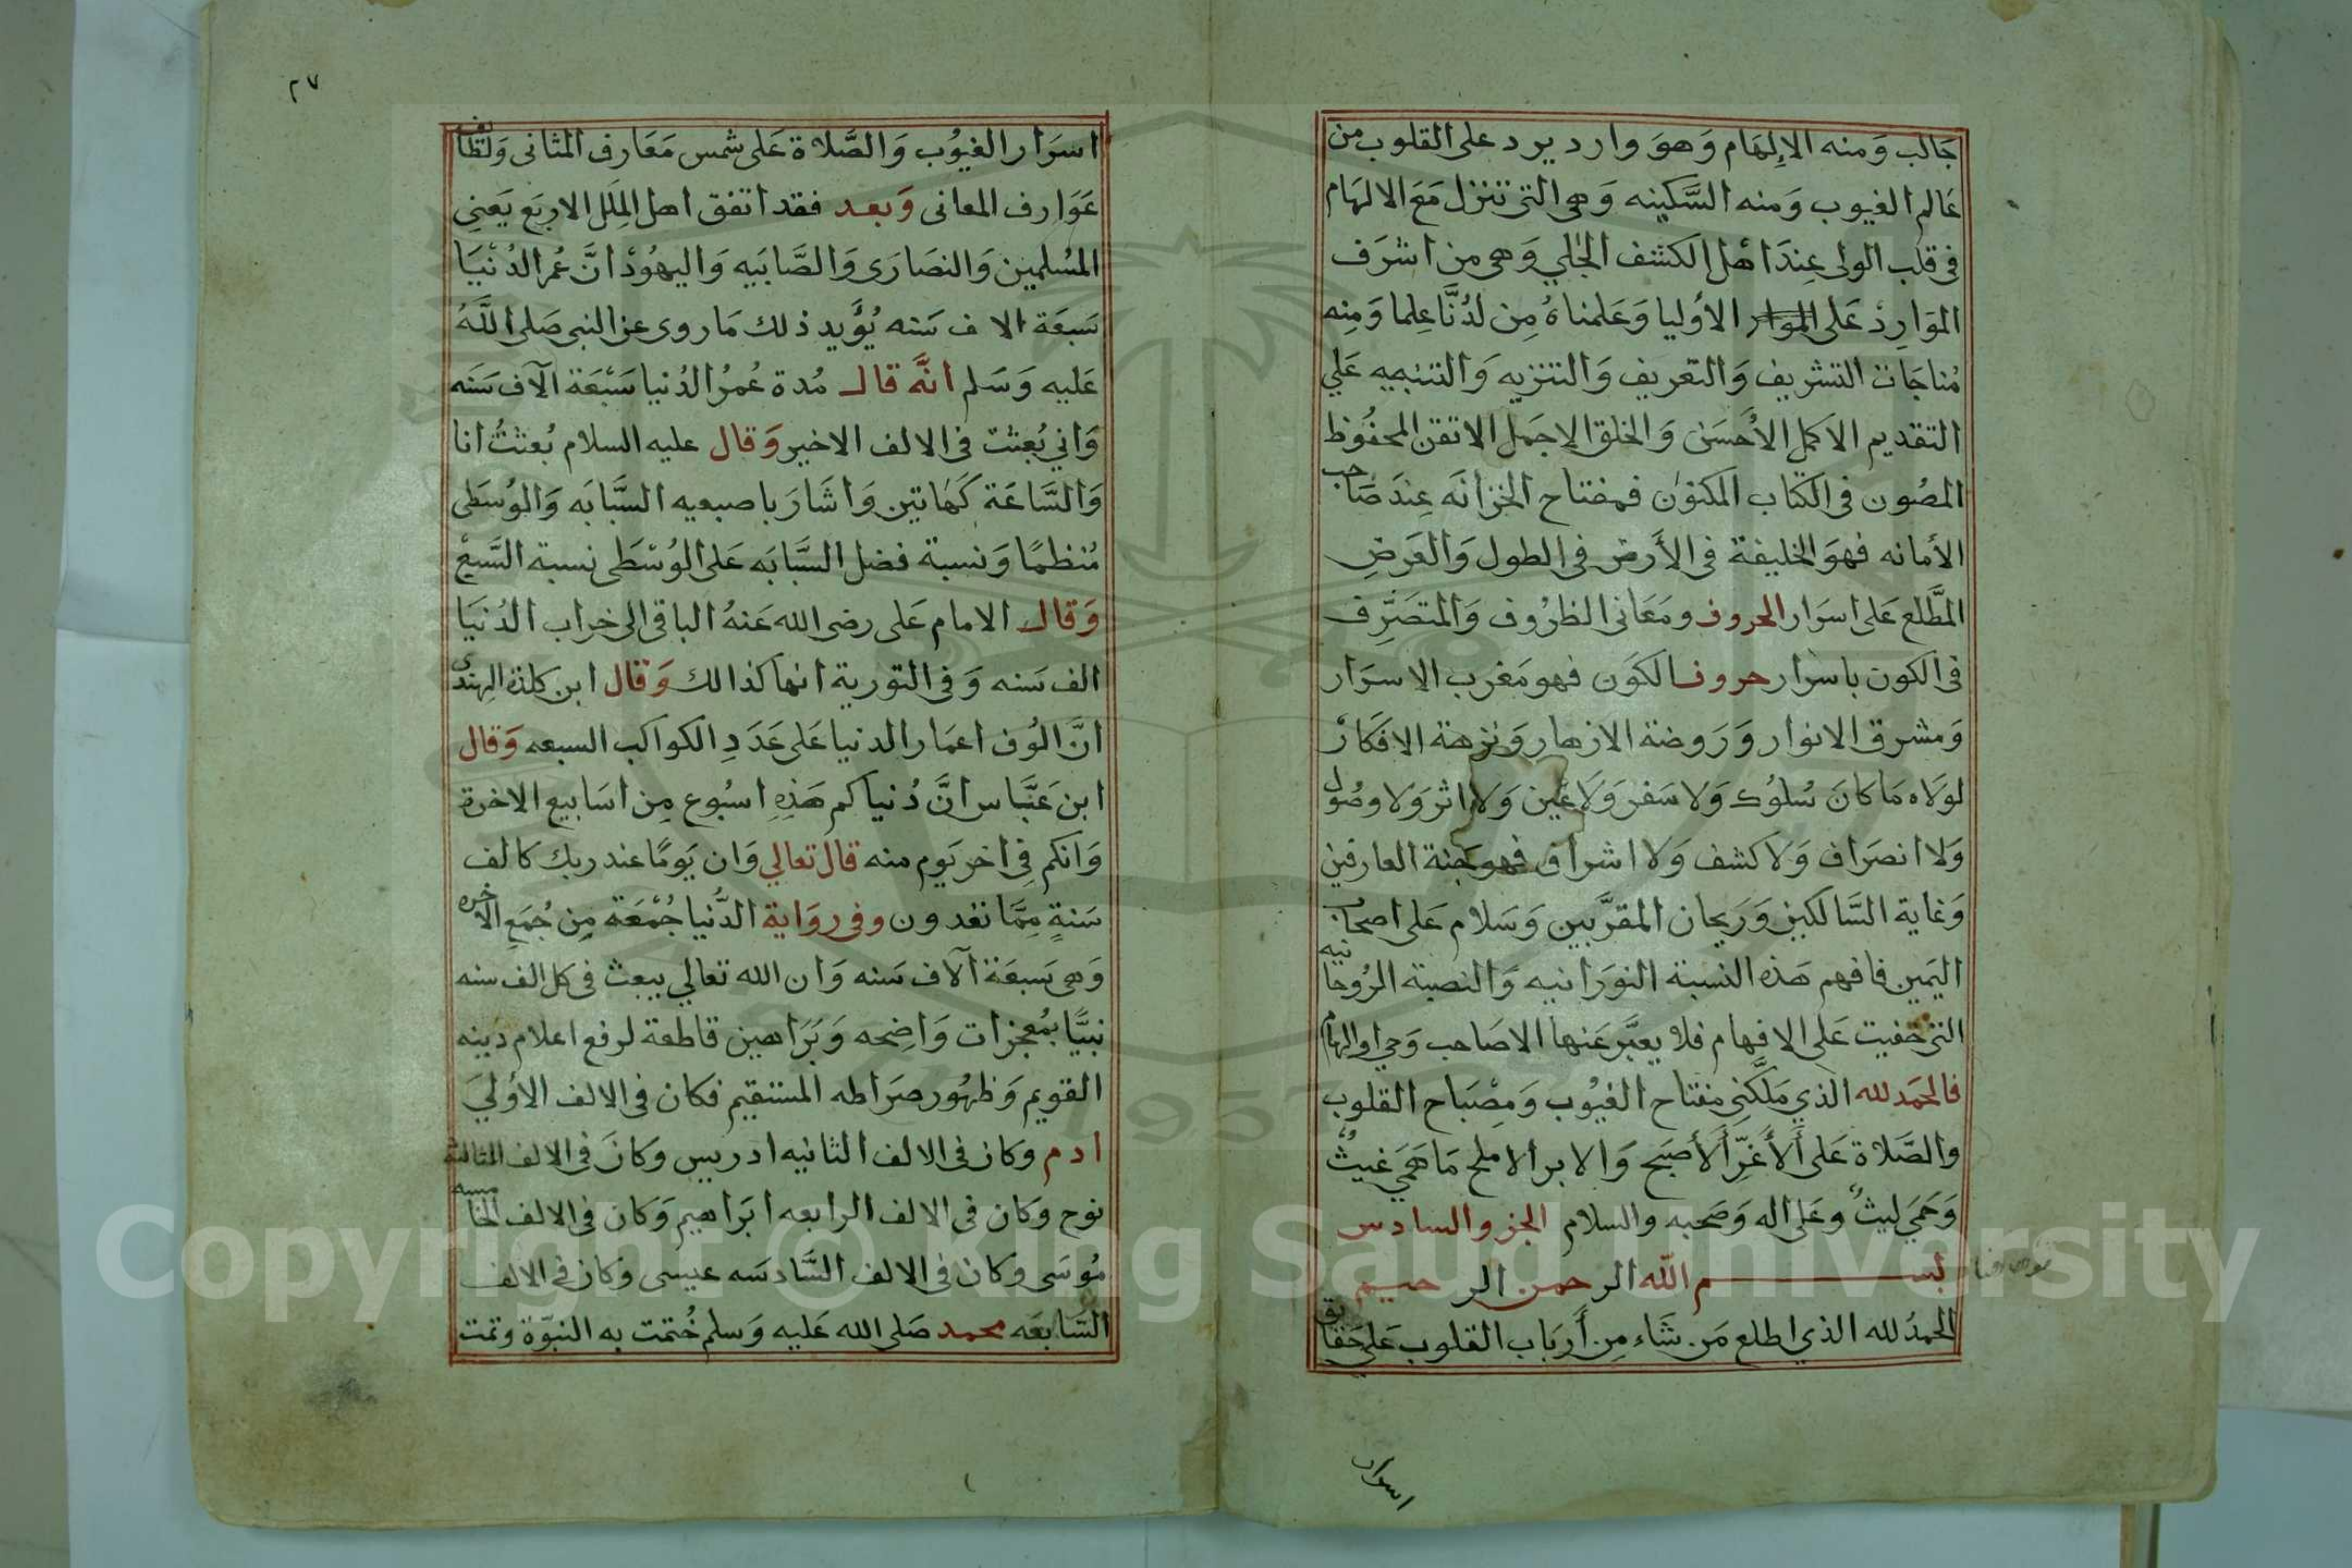 جَالب وَمنه الالِهَام وَهوَ وارد يرد على القلوب من
عَالم الغيوب وَمنه السَّكينه وَهى التى تنزل مَعَ الالهَام
فى قلب الولى عِندَ اهْل الكشف الجَلي وَهى من اشرَف
الموَارِدْ عَلى الموار الأوليا وَعَلمناهُ مِن لدُنَّا عِلما وَمِنه
مُناجَات التشريف وَالتعريف وَالتنزيه وَالتنبيه عَلي
التقديم الاكمل الأحسَن وَالخلق الاجمَل الاتقن المحفُوظ
المصُون فى الكتاب المكنوُن فمفتاح الخزانَه عِندَ صَاحب
الأمانه فهوَ الخليفة فى الأرض فى الطول وَالعَرضِ
المطَّلع عَلى اسرَار الحروف ومَعَانى الظرُوف وَالمتصَرِّف
فى الكون باسرار حروف الكَون فهو مَغرب الاسرَار
وَمشرق الانوار وَرَوضة الازهار وَنزهة الافكَارْ
لوَلَاه مَا كانَ سُلوُك وَلا سَفر وَلَا عَين وَلَا اثر وَلا وصُول
وَلا انصرَاف وَلا كشف وَلا اشراف فهو جنة العارفين
وَغاية السَّالكين وَرَيحان المقرَّبين وَسَلام عَلى اصحاب
اليَمين فافهم هَذه النسبة النوَرَانيه وَالنصبة الرُوحانيه
التى خفيت عَلى الافهام فلا يعبَّر عَنها الا صَاحب وَحى او الهام
فالحمَد لله الذي مَلكَّنى مفتاح الغيُوب وَمِصْبَاح القلوب
والصَّلاة عَلى الأغَرِّ الأصبَح وَالابر الاملح مَا هَمَي غيثٌ
وَحَمَي ليثٌ وعَلى اله وَصَحبه والسلام الجزو السادس
بسم الله الرحمن الرحيم
الحمدُ لله الذي اطلع مَن شَاء مِن أربَاب القلوب عَلى حَقايق
اسرار
٢٧
اسرَار الغيُوب وَالصَّلاة عَلى شمس مَعَارف المثانى وَلطَايف
عَوَارف المعانى وَبعد فقد اتفق اهل المِلَل الاربَع يَعنِى
المسُلمين وَالنصَارَى وَالصَّابَيه وَاليهُودْ انَّ عُمر الدُنْيَا
سَبعَة الاف سَنه يُؤَيد ذلك مَا روى عن النبى صَلى اللَّهُ
عَليه وَسَلم انَّه قال مُدة عُمرُ الدُنيا سَبْعَة آلآف سَنَه
وَاني بُعِثت فى الالف الاخير وَقال عليه السلام بُعثتُ انا
وَالسَّاعَة كَهَاتين وَاشَارَ باصبعيه السَّبَابَه وَالوُسطَى
مُنظمًا وَنسبة فضل السَّبَابَه عَلى الوُسْطَى نسبة السَّبع
وَقال الامام عَلى رضى الله عَنهُ الباقى الى خراب الدُنيَا
الف سَنه وَفى التورية انها كذالك وَقال ابن كلدة الهندى
انَّ الوُف اعمَار الدنيا عَلى عَدَدِ الكواكب السبعه وَقال
ابن عَبَّاس انَّ دُنياكم هَذِهِ اسبُوع مِن اسَابيع الاخرة
وَانكم فِى اخر يَوم منه قال تعالي وَان يَومًا عند ربك كالف
سَنةٍ مِمَّا تعدون وفى روَاية الدُّنيا جُمْعَة مِن جُمَعِ الاخره
وَهى سَبعَة آلاف سَنه وَان الله تعَالي يبعث فى كل الف سنه
نبيًّا بمُعجزات وَاضِحه وَبَرَاهين قاطعة لرفع اعلام دينه
القويم وَظهُور صرَاطه المستقيم فكان فى الالف الأوليَ
ادم وكان فى الالف الثانيه ادريس وكانَ فى الالف الثالثة
نوح وَكان فى الالف الرابعه ابَراهيم وَكان فى الالف الخامسه
مُوسَى وكان فى الالف السَّادسَه عيسى وكان فى الالف
السَّابعَه محمد صَلى الله عَليه وَسلم خُتمت به النبوّة وتمت
Copyright © King Saud University
1957